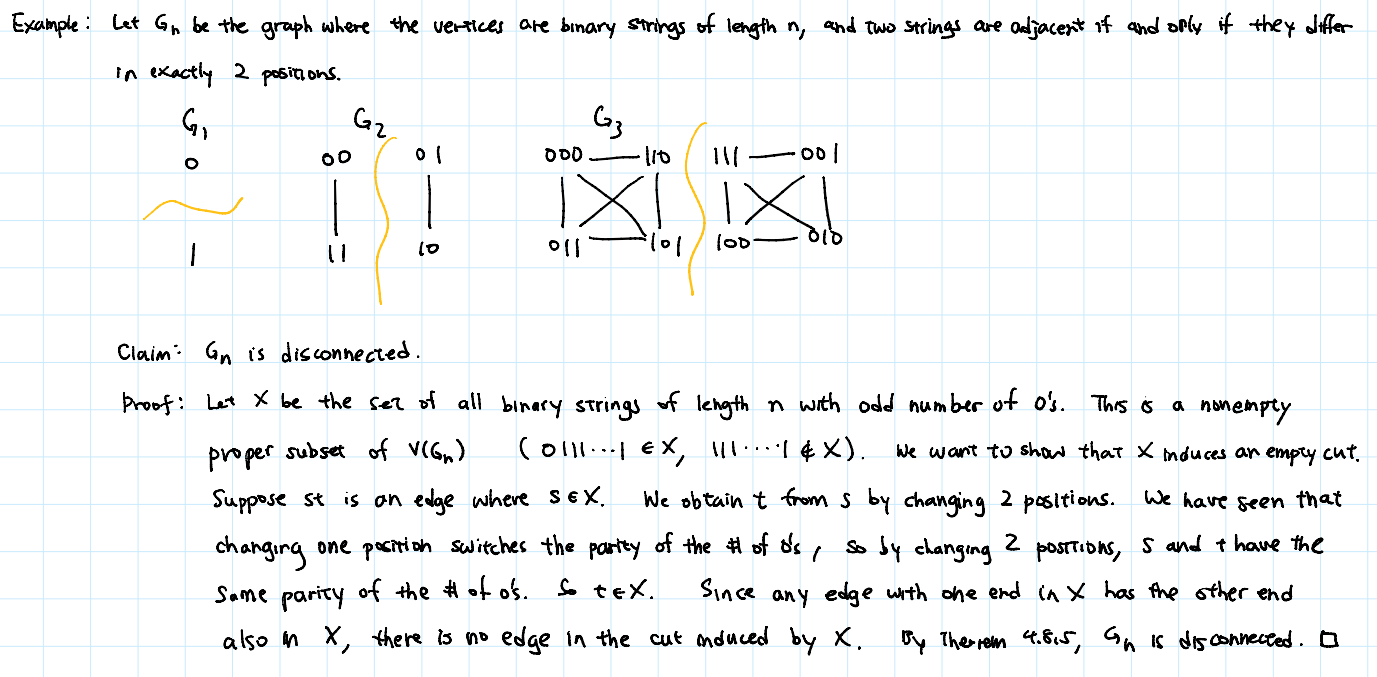 Example: Let Gn be the graph where the vertices are binary strings of length n, and two strings are adjacent if and only if they differ
in exactly 2 positions.
G1 G2 G3
0 00 01 000 110 111 001
1 11 10 011 101 100 010
Claim: Gn is disconnected.
Proof: Let X be the set of all binary strings of length n with odd number of 0's. This is a nonempty
proper subset of V(Gn) (0111...1 ∈ X, 111....1 ∉ X). We want to show that X induces an empty cut.
Suppose st is an edge where s∈X. We obtain t from s by changing 2 positions. We have seen that
changing one position switches the parity of the # of 0's, so by changing 2 positions, s and t have the
same parity of the # of 0's. So t∈X. Since any edge with one end in X has the other end
also in X, there is no edge in the cut induced by X. By Theorem 4.8.5, Gn is disconnected. □